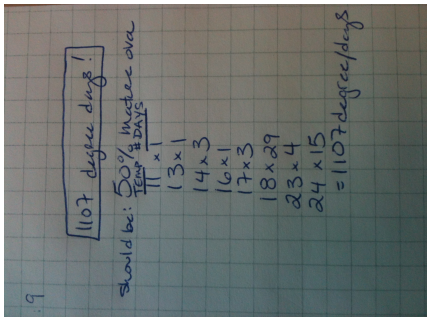 :9
1107 degree days!
should be: 50% mature ova
TEMP # DAYS
11 x 1
13 x 1
14 x 3
16 x 1
17 x 3
18 x 29
23 x 4
24 x 15
= 1107 degree/days